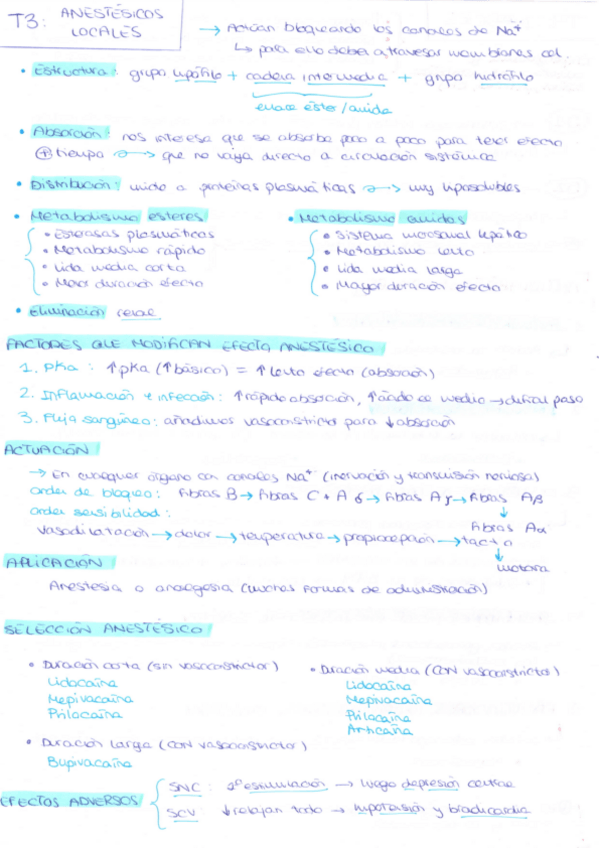 T3: ANESTÉSICOS LOCALES
→ Actúan bloqueando los canales de Na⁺
↳ para ello deben atravesar membranas cel.
• Estructura: grupo lipófilo + cadena intermedia + grupo hidrófilo
enlace éster/amida
• Absorción: nos interesa que se absorba poco a poco para tener efecto
⊕ tiempo → que no vaya directo a circulación sistémica
• Distribución: unido a proteínas plasmáticas → muy liposolubles
• Metabolismo ésteres
• Esterasas plasmáticas
• Metabolismo rápido
• Vida media corta
• Menor duración efecto
• Metabolismo amidas
• Sistema microsomal hepático
• Metabolismo lento
• Vida media larga
• Mayor duración efecto
• Eliminación renal
FACTORES QUE MODIFICAN EFECTO ANESTÉSICO
1. PKa: ↑pKa (↑básico) = ↑lento efecto (absorción)
2. Inflamación e infección: ↑rápido absorción, ↑ácido el medio → dificil paso
3. Flujo sanguíneo: añadimos vasoconstrictor para ↓absorción
ACTUACIÓN
→ En cualquier órgano con canales Na⁺ (inervación y transmisión nerviosa)
orden de bloqueo: fibras B → fibras C + A δ → fibras A γ → fibras Aβ
↓
fibras Aα
orden sensibilidad:
vasodilatación → dolor → temperatura → propiocepción → tacto
↓
motora
APLICACIÓN
Anestesia o analgesia (muchas formas de administración)
SELECCIÓN ANESTÉSICO
• Duración corta (sin vasoconstrictor)
Lidocaína
Mepivacaína
Prilocaína
• Duración media (CON vasoconstrictor)
Lidocaína
Mepivacaína
Prilocaína
Articaína
• Duración larga (CON vasoconstrictor)
Bupivacaína
EFECTOS ADVERSOS
SNC: 1º estimulación → luego depresión central
SCV: ↓relajan todo → hipotensión y bradicardia